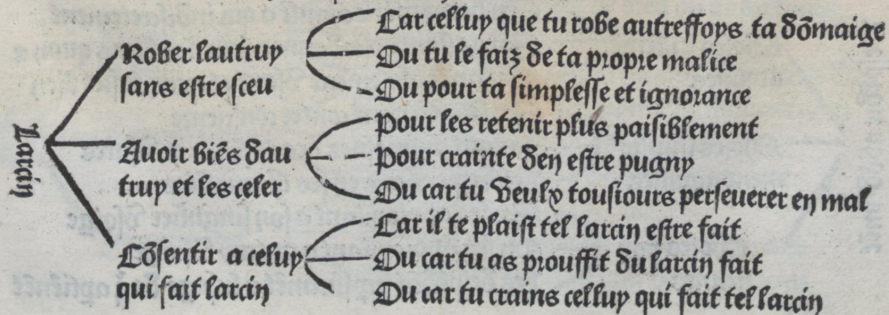 Larcin
Rober lautruy
sans estre sceu
Car celluy que tu robe autreffoys ta dõmaige
Ou tu le faiz de ta propre malice
Ou pour ta simplesse et ignorance
Avoir biẽs dau
truy et les celer
Pour les retenir plus paisiblement
Pour crainte den estre pugny
Ou car tu veulx tousiours perseverer en mal
Cõsentir a celuy
qui fait larcin
Car il te plaist tel larcin estre fait
Ou car tu as prouffit du larcin fait
Ou car tu crains celluy qui fait tel larcin